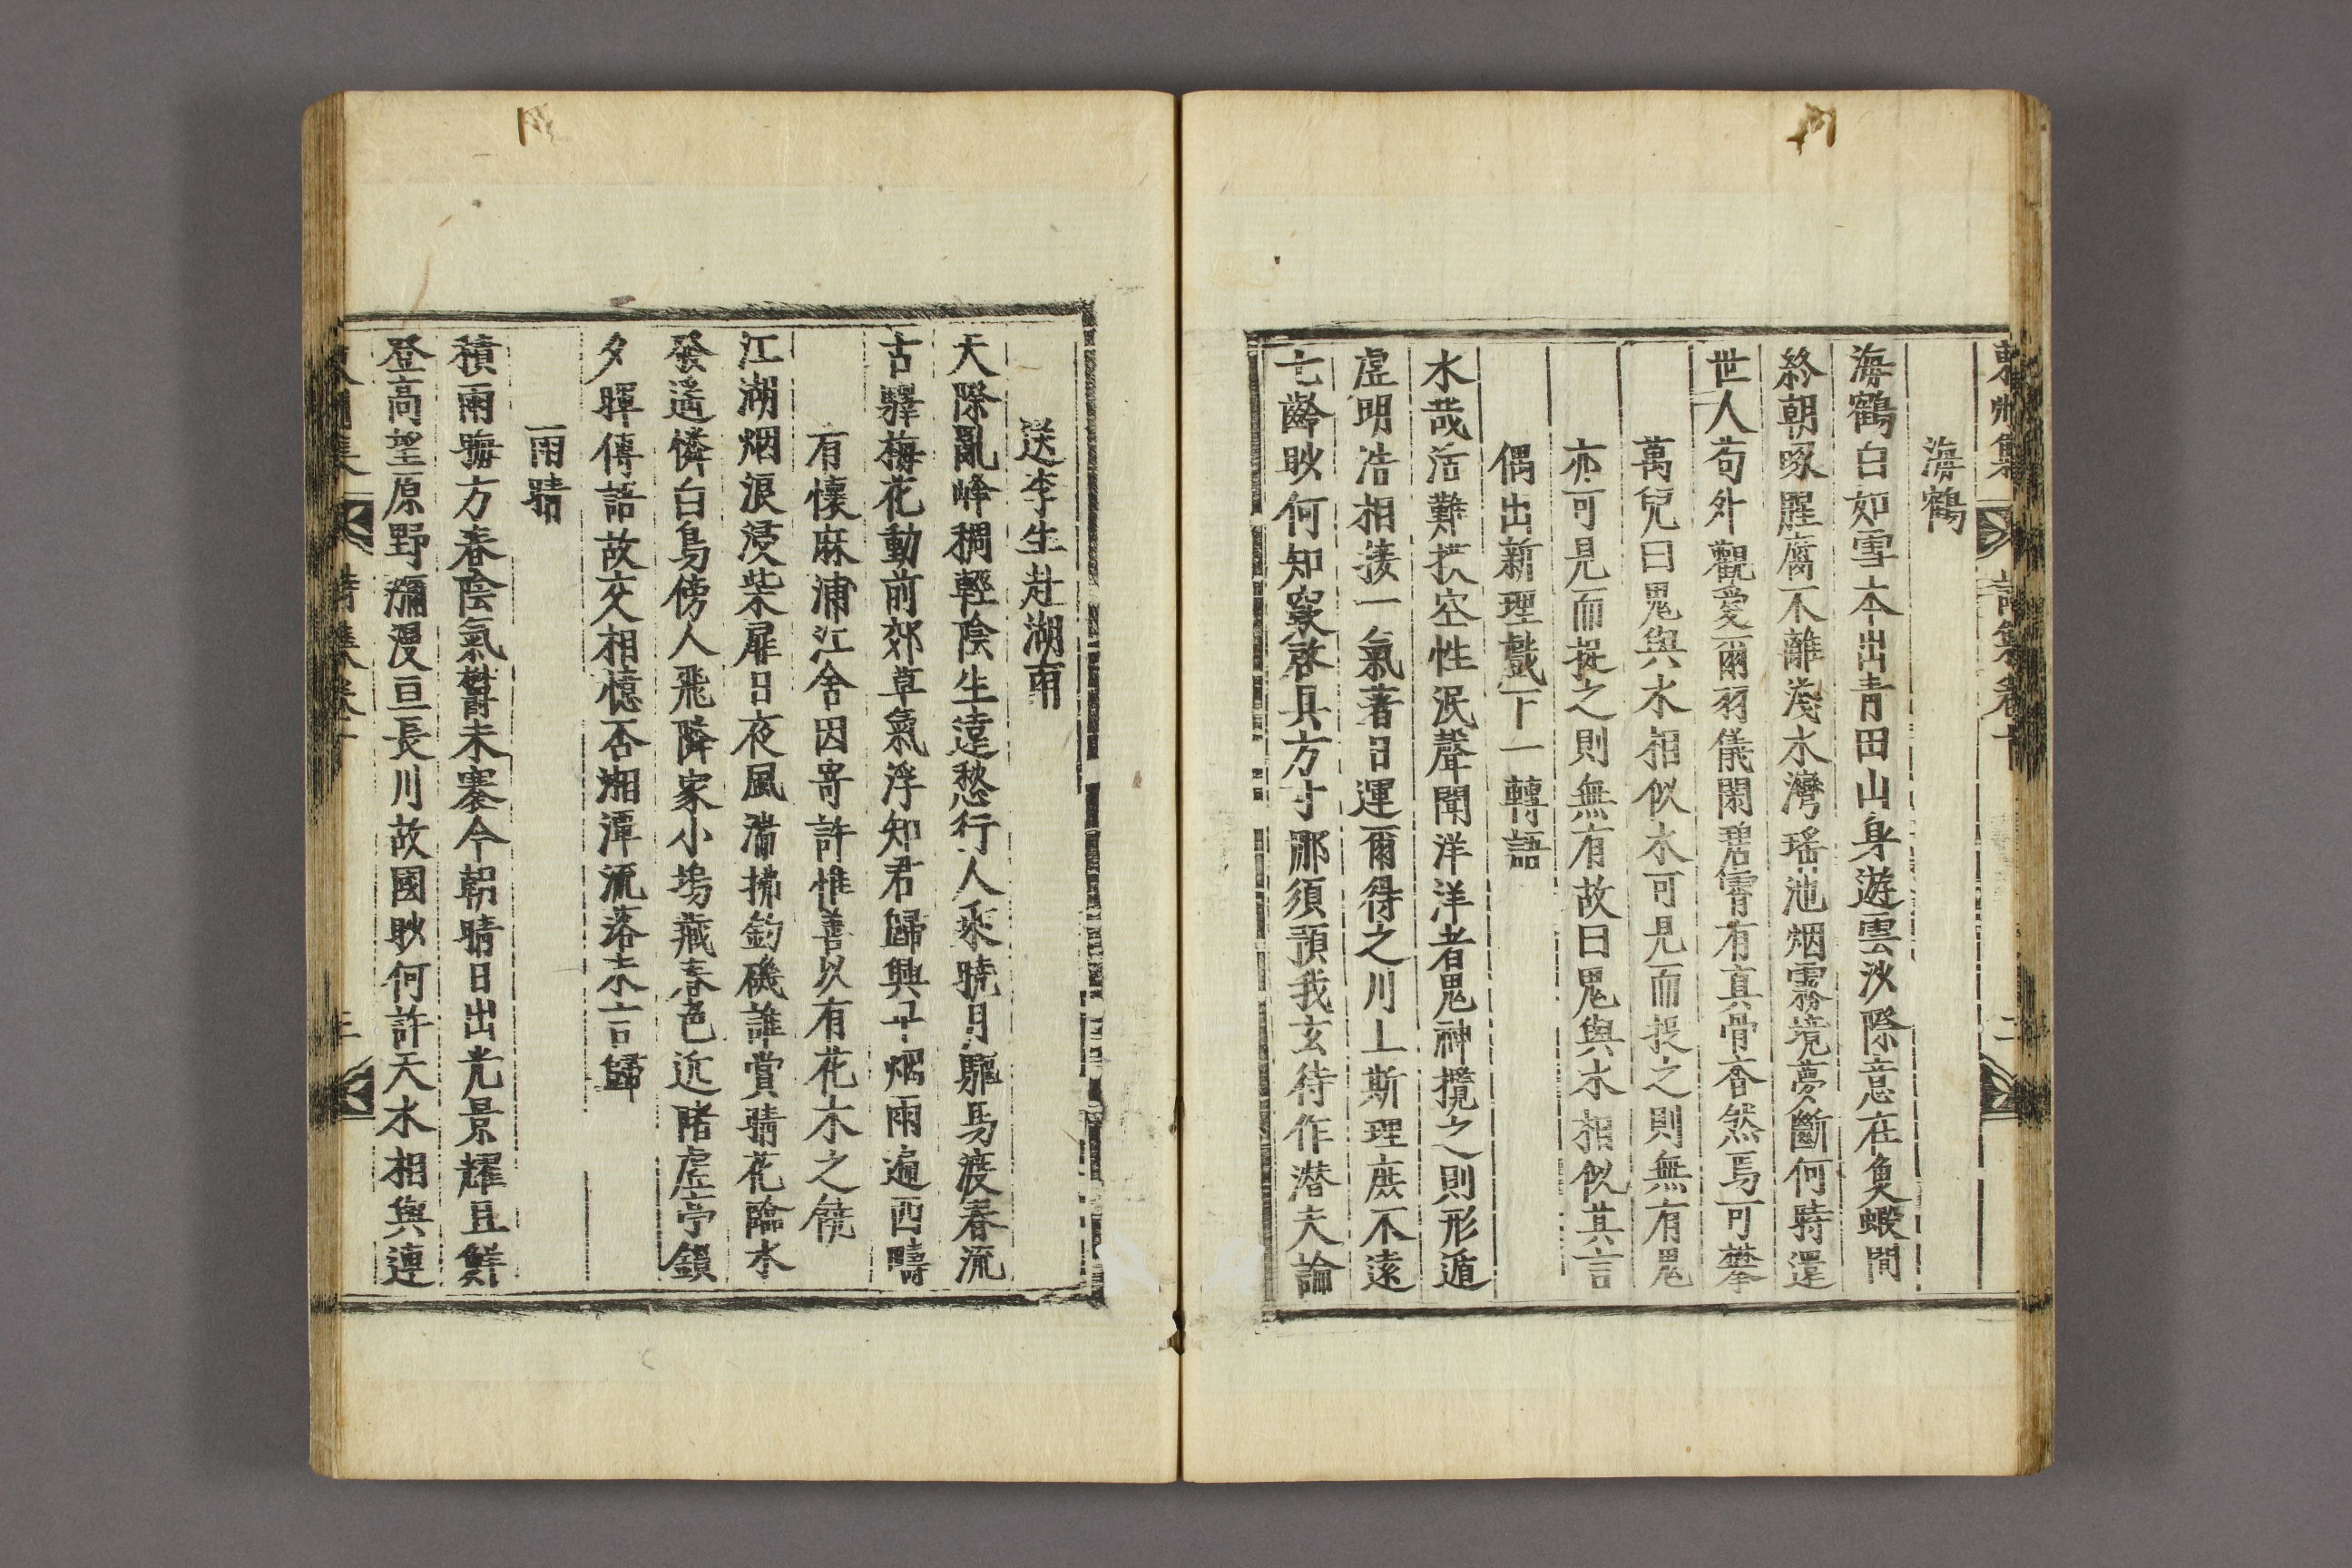 海鶴
海鶴白如雪本出青田山身遊雲沙際意在魚蝦間
終朝啄腥腐不離淺水灣瑤池烟霧境夢斷何時還
世人苟外觀愛爾羽儀閑碧霄有真骨杳然焉可攀
萬兒曰鬼與水相似水可見而捉之則無有鬼
亦可見而捉之則無有故曰鬼與水相似其言
偶出新理戲下一轉語
水哉活難挨空性泯聲聞洋洋者鬼神攬之則形遁
虛明浩相接一氣著日運爾待之川上斯理庶不遠
七齡眇何知窾啓具方寸那須預我玄待作潛夫論
送李生赴湖南
天際亂峰稠輕陰生遠愁行人乘曉月驅馬渡春流
古驛梅花動前郊草氣浮知君歸興早烟雨遍西疇
有懷麻浦江舍因寄許惟善以有花木之饒
江湖烟浪浸柴扉日夜風湍拂釣磯誰賞晴花臨水
發遙憐白鳥傍人飛隣家小塢藏春色近睹虛亭鎖
夕暉傳語故交相憶否湘潭流落未言歸
雨晴
積雨晦方春陰氣鬱未褰今朝晴日出光景耀且鮮
登高望原野瀰漫亘長川故國眇何許天水相與連